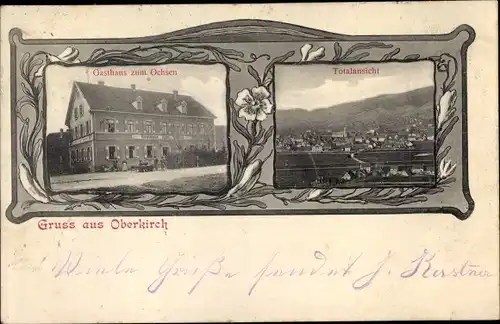 Gasthaus zum Ochsen
Totalansicht
Gruss aus Oberkirch
Viele Grüße sendet J. Kerstner